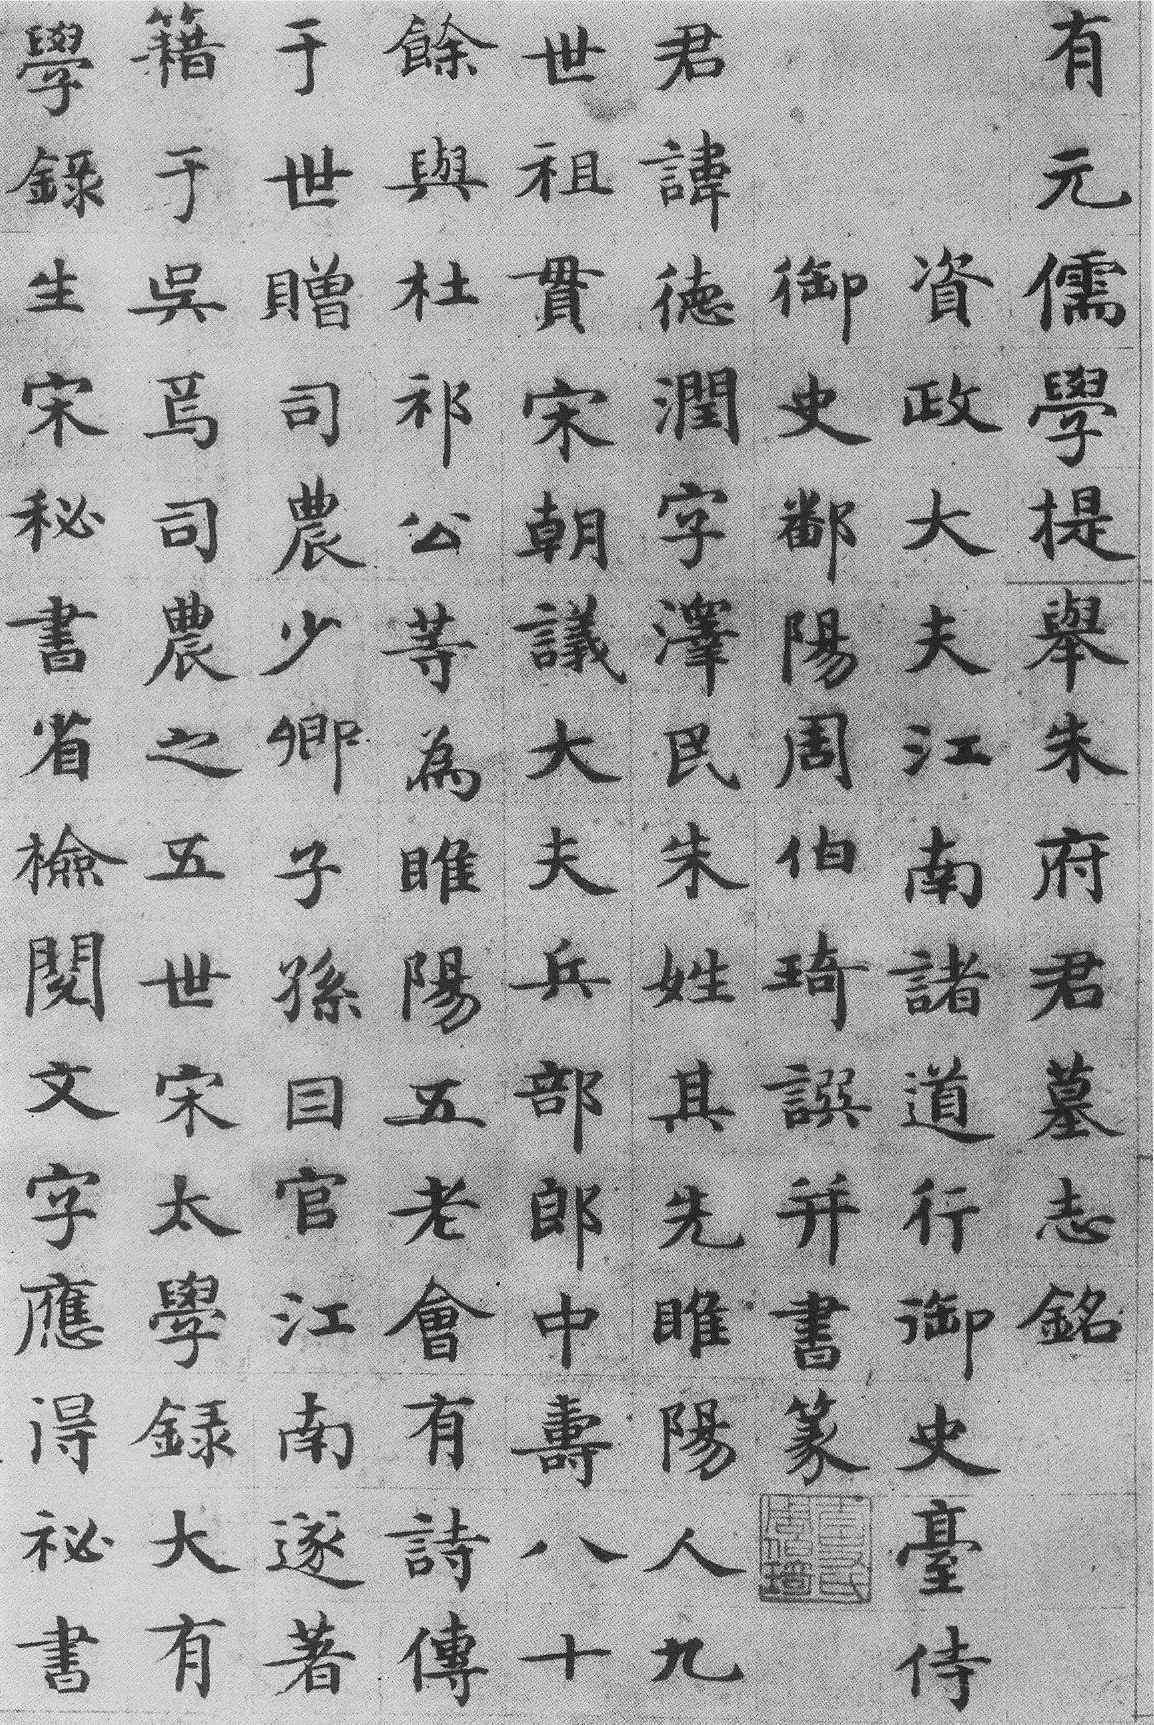 有元儒學提舉朱府君墓志銘
資政大夫江南諸道行御史臺侍
御史鄱陽周伯琦譔并書篆
君諱德潤字澤民朱姓其先睢陽人九
世祖貫宋朝議大夫兵部郎中壽八十
餘與杜祁公等為睢陽五老會有詩傳
于世贈司農少卿子孫因官江南遂著
籍于吳焉司農之五世宋太學録大有
學錄生宋秘書省檢閱文字應得祕書